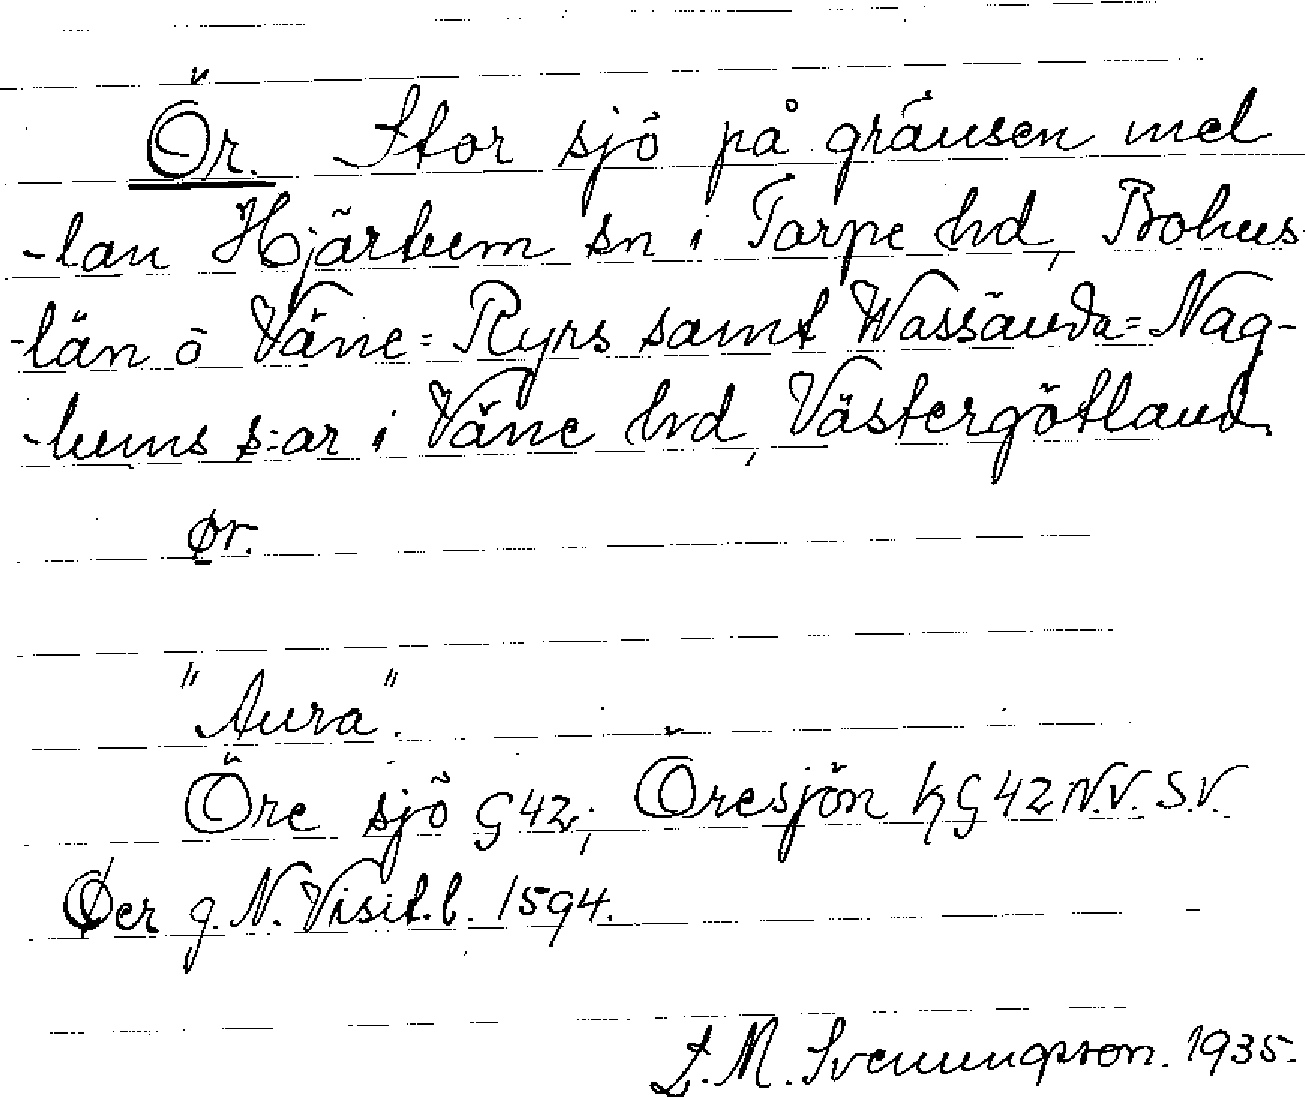 Ör. Stor sjö på gränsen mel
-lan Hjärtum sn i Torpe hd, Bohus-
-län ö Väne=Ryrs samt Wassända=Nag-
-lums s:ar i Väne hd, Västergötland.
ør.
"Aura".
Öre sjö G42; Öresjön hG42 N.V. S.V.
Øer g. N. Visit.b. 1594.
L. M. Svenungsson. 1935.